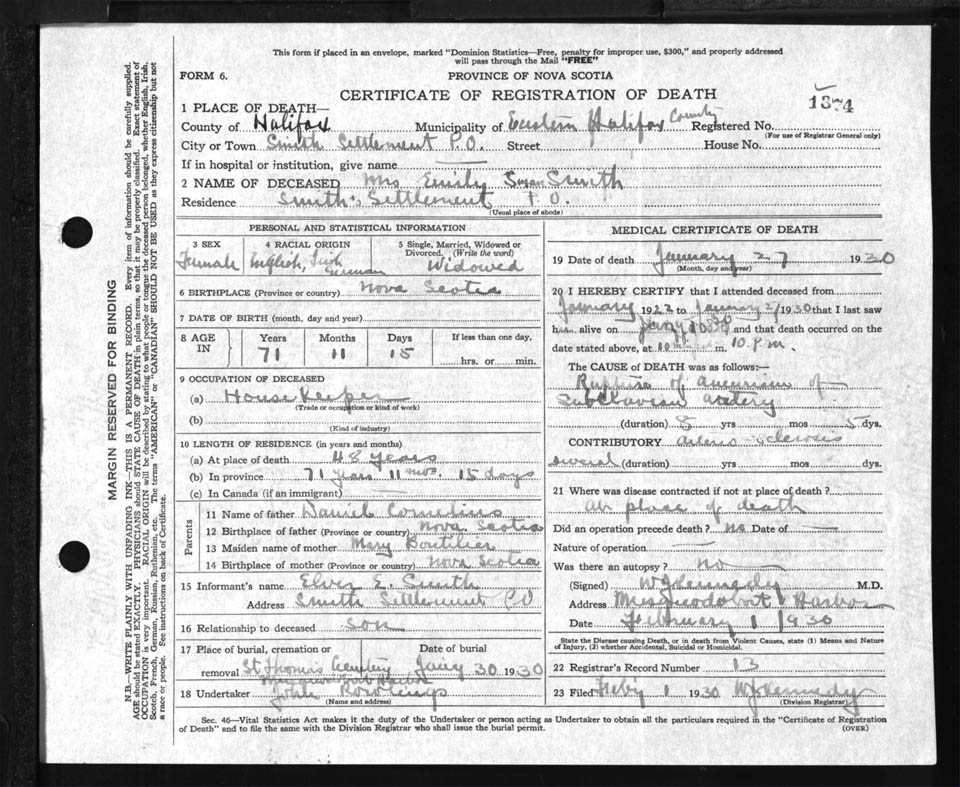 This form if placed in an envelope, marked "Dominion Statistics—Free, penalty for improper use, $300," and properly addressed
will pass through the Mail "FREE"
FORM 6.
PROVINCE OF NOVA SCOTIA
CERTIFICATE OF REGISTRATION OF DEATH
1374
1 PLACE OF DEATH—
County of Halifax Municipality of Eastern Halifax County Registered No.
(For use of Registrar General only)
City or Town Smith Settlement P.O. Street House No.
If in hospital or institution, give name —
2 NAME OF DECEASED Mrs Emily Susan Smith
Residence Smith's Settlement P.O.
(Usual place of abode)
PERSONAL AND STATISTICAL INFORMATION
3 SEX
Female
4 RACIAL ORIGIN
English, Irish
German
5 Single, Married, Widowed or
Divorced. (Write the word)
Widowed
6 BIRTHPLACE (Province or country) Nova Scotia
7 DATE OF BIRTH (month, day and year)
8 AGE IN
Years Months Days If less than one day,
71 11 15 hrs. or min.
9 OCCUPATION OF DECEASED
(a) House Keeper
(Trade or occupation or kind of work)
(b)
(Kind of industry)
10 LENGTH OF RESIDENCE (in years and months)
(a) At place of death 48 years
(b) In province 71 years 11 mos. 15 days
(c) In Canada (if an immigrant) —
Parents
11 Name of father Daniel Cornelius
12 Birthplace of father (Province or country) Nova Scotia
13 Maiden name of mother Mary Boutilier
14 Birthplace of mother (Province or country) Nova Scotia
15 Informant's name E. Smith
Address Smith Settlement PO
16 Relationship to deceased son
17 Place of burial, cremation or removal Date of burial
St Thomas Cemetery Jany 30 1930
18 Undertaker John Rowlings
(Name and address)
MEDICAL CERTIFICATE OF DEATH
19 Date of death January 27 1930
(Month, day and year)
20 I HEREBY CERTIFY that I attended deceased from
January 1922 to January 27 1930 that I last saw
h alive on and that death occurred on
date stated above, at m. 10 p.m.
The CAUSE of DEATH was as follows:—
Rupture of aneurism of
Subclavian artery
(duration) 8 yrs mos 5 dys.
CONTRIBUTORY arterio-sclerosis
several (duration) yrs mos dys.
21 Where was disease contracted if not at place of death?
at place of death
Did an operation precede death? no Date of —
Nature of operation —
Was there an autopsy? no
(Signed) W J Kennedy M.D.
Address Musquodoboit Harbor
Date February 1 1930
State the Disease causing Death, or in death from Violent Causes, state (1) Means and Nature
of Injury, (2) whether Accidental, Suicidal or Homicidal.
22 Registrar's Record Number 13
23 Filed Feby 1 1930 W J Kennedy
(Division Registrar)
Sec. 46—Vital Statistics Act makes it the duty of the Undertaker or person acting as Undertaker to obtain all the particulars required in the "Certificate of Registration
of Death" and to file the same with the Division Registrar who shall issue the burial permit.
(OVER)
MARGIN RESERVED FOR BINDING
N.B.—WRITE PLAINLY WITH UNFADING INK—THIS IS A PERMANENT RECORD. Every item of information should be carefully supplied.
AGE should be stated EXACTLY. PHYSICIANS should STATE CAUSE OF DEATH in plain terms, so that it may be properly classified. Exact statement of
OCCUPATION is very important. RACIAL ORIGIN will be described by stating to what people or tongue the deceased person belonged, whether English, Irish,
Scotch, French, German, Russian, Ruthenian, etc. The terms "AMERICAN" or "CANADIAN" SHOULD NOT BE USED as they express citizenship but not
a race or people. See instructions on back of Certificate.